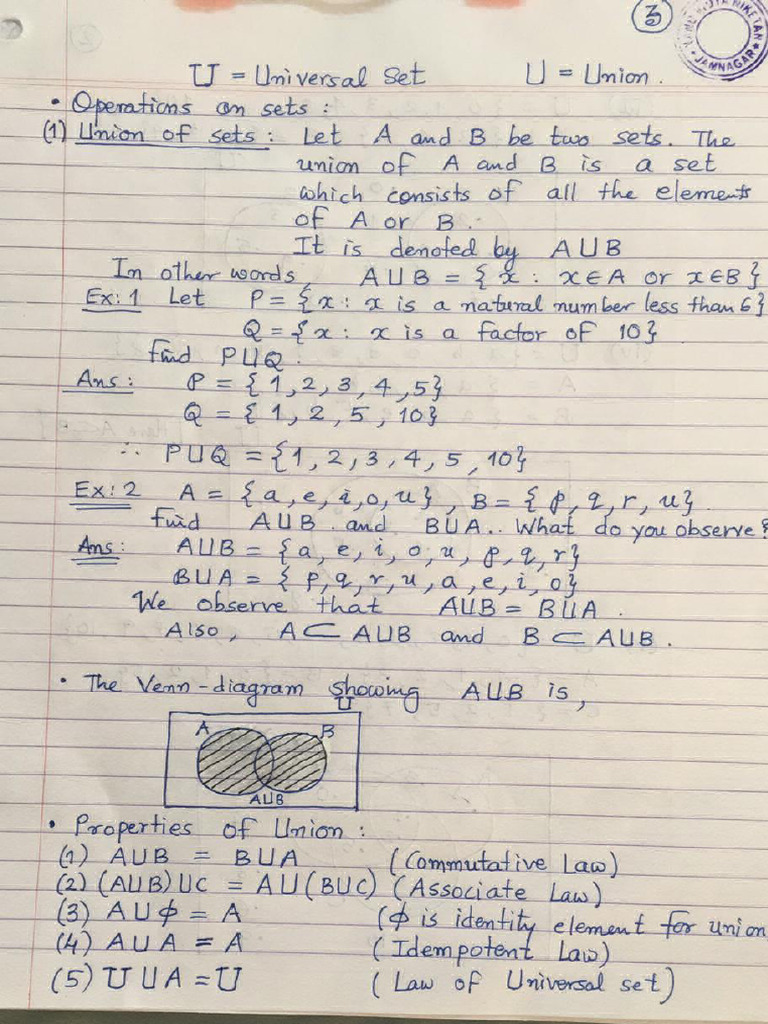 3
JAMNAGAR
U = Universal Set U = Union.
• Operations on sets :
(1) Union of sets : Let A and B be two sets. The
union of A and B is a set
which consists of all the elements
of A or B.
It is denoted by A∪B
In other words A∪B = { x : x∈A or x∈B }
Ex: 1 Let P = { x : x is a natural number less than 6 }
Q = { x : x is a factor of 10 }
find P∪Q.
Ans : P = { 1, 2, 3, 4, 5 }
Q = { 1, 2, 5, 10 }
∴ P∪Q = { 1, 2, 3, 4, 5, 10 }
Ex: 2 A = { a, e, i, o, u } , B = { p, q, r, u }.
find A∪B and B∪A.. What do you observe?
Ans : A∪B = { a, e, i, o, u, p, q, r }
B∪A = { p, q, r, u, a, e, i, o }
We observe that A∪B = B∪A.
Also, A ⊂ A∪B and B ⊂ A∪B.
• The Venn-diagram showing A∪B is,
U
A B
A∪B
• Properties of Union :
(1) A∪B = B∪A (Commutative Law)
(2) (A∪B)∪C = A∪(B∪C) (Associate Law)
(3) A∪ϕ = A (ϕ is identity element for union
(4) A∪A = A (Idempotent Law)
(5) U∪A = U (Law of Universal set)